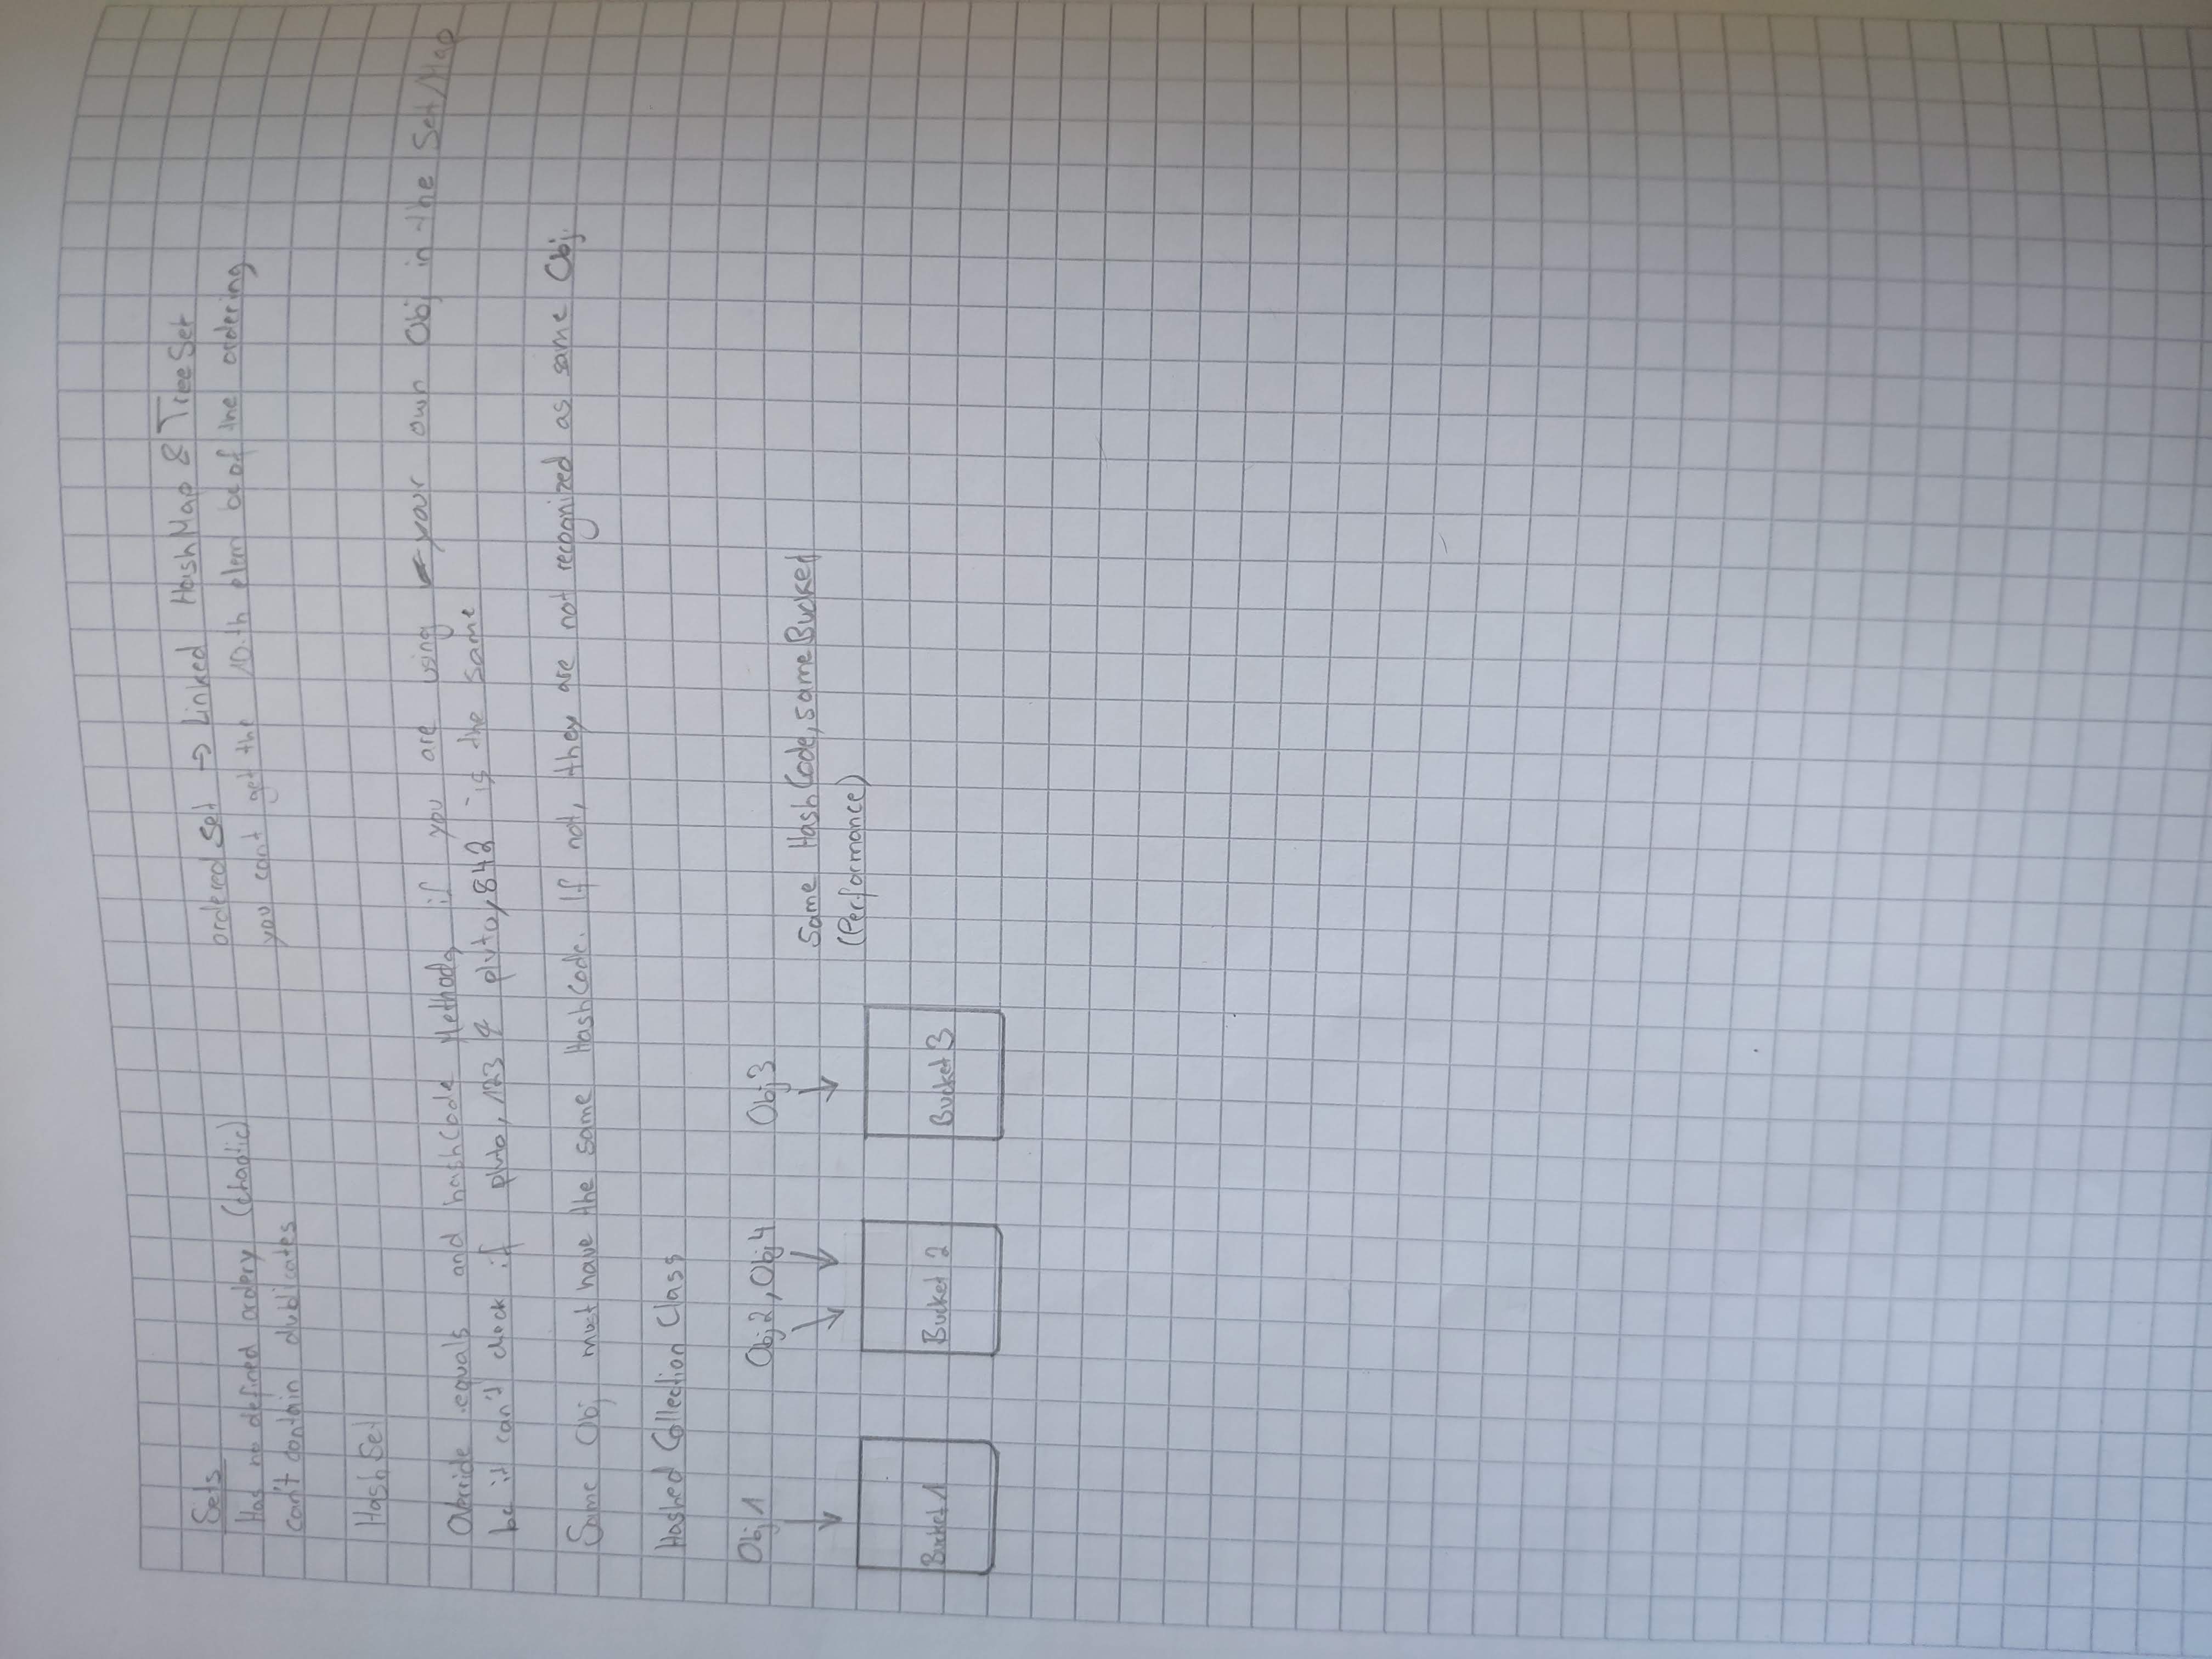 Sets
Has no defined ordery (chaotic)
can't contain dublicates
ordered Set → Linked HashMap & TreeSet
you cant get the 10.th elem bc of the ordering
HashSet
Override .equals and hashCode Methods if you are using your own Obj in the Set/Map
bc it can't check if pluto, 123 & pluto, 842 is the same
Same Obj must have the same HashCode. If not, they are not recognized as same Obj.
Hashed Collection Class
Obj1 Obj2, Obj4 Obj3
Same HashCode, same Bucket
(Performance)
Bucket 1 Bucket 2 Bucket 3